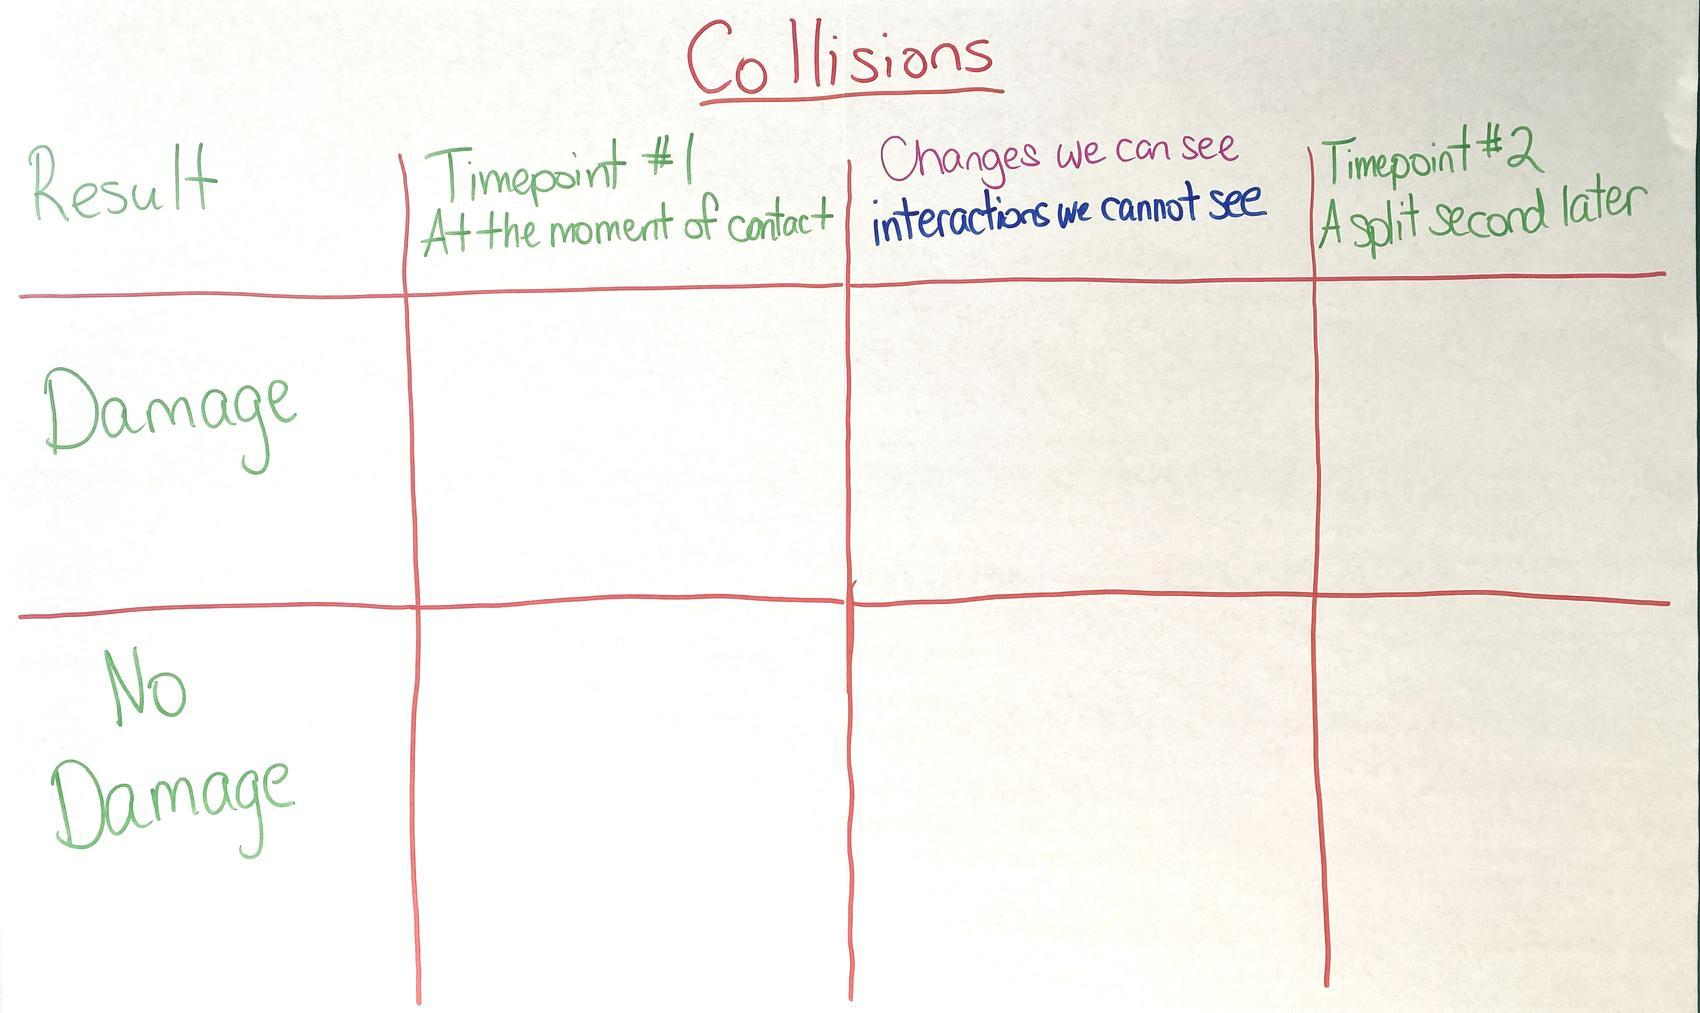 Collisions
Result
Timepoint #1
At the moment of contact
Changes we can see
interactions we cannot see
Timepoint #2
A split second later
Damage
No
Damage